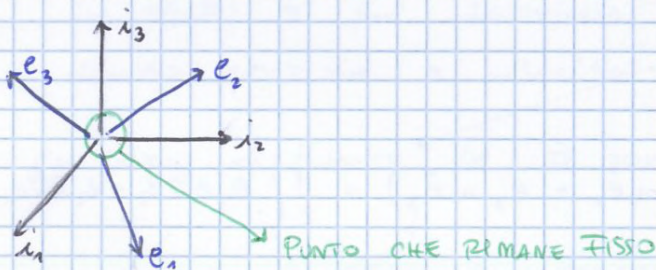 i₃
e₃
e₂
i₂
i₁
e₁
PUNTO CHE RIMANE FISSO